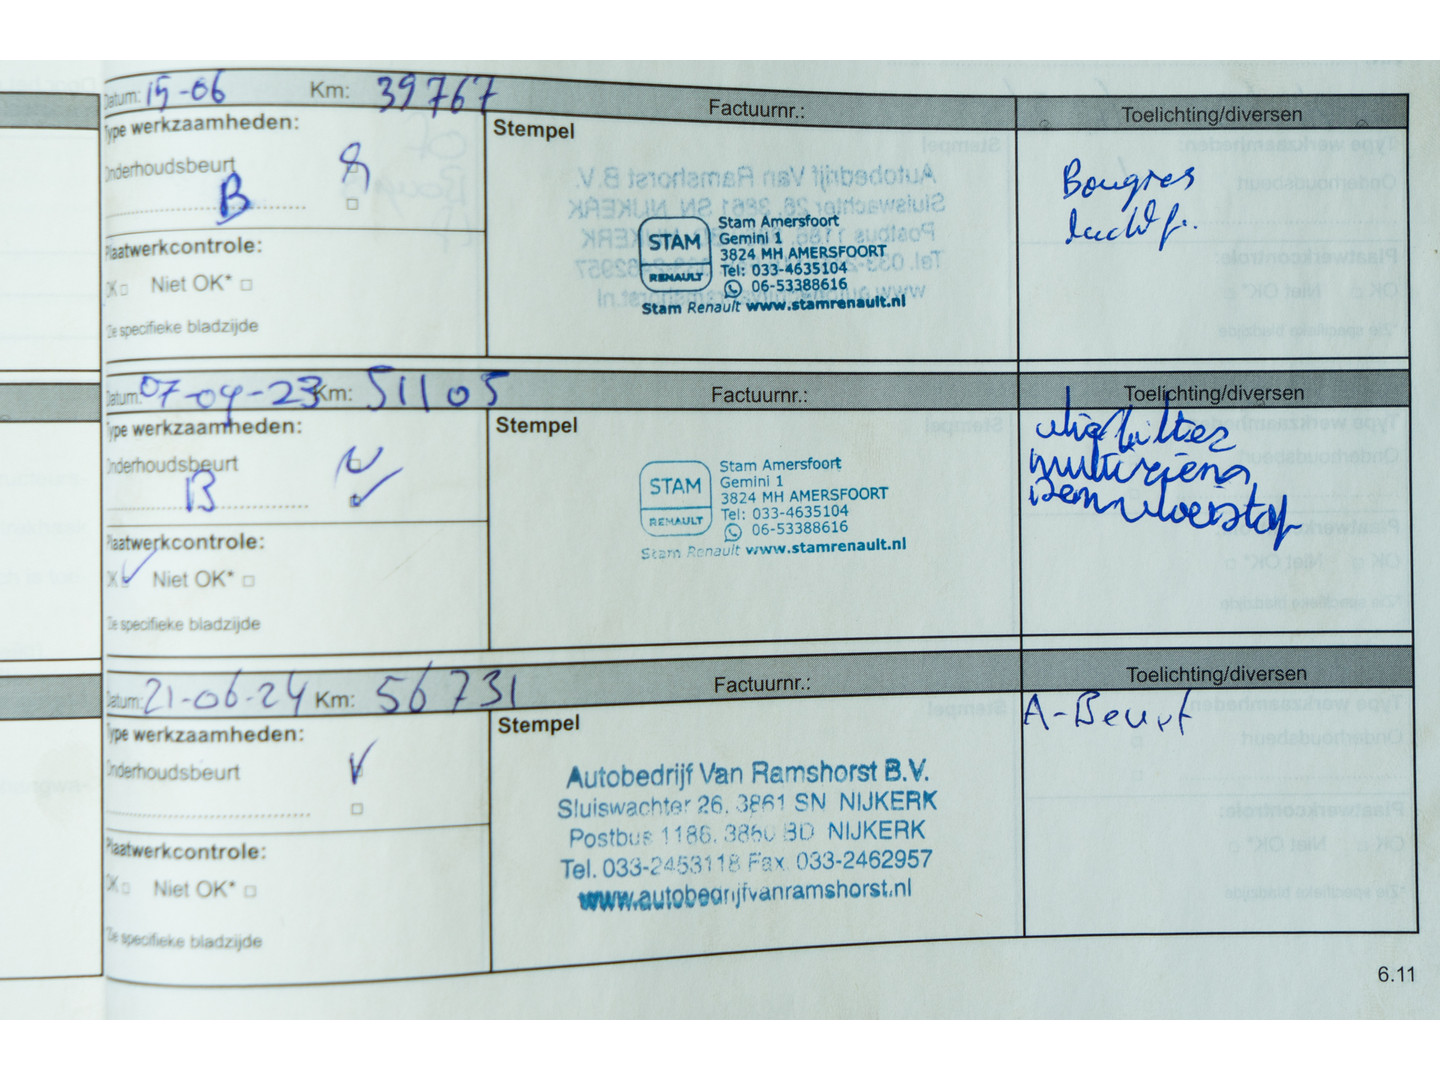 Datum: 15-06 Km: 39767 Factuurnr.: Toelichting/diversen
Type werkzaamheden:
Onderhoudsbeurt
B
Plaatwerkcontrole:
OK Niet OK*
Zie specifieke bladzijde
Stempel
STAM
RENAULT
Stam Amersfoort
Gemini 1
3824 MH AMERSFOORT
Tel: 033-4635104
06-53388616
Stam Renault www.stamrenault.nl
Bougies
luchtf.
Datum: 07-04-23 Km: 51105 Factuurnr.: Toelichting/diversen
Type werkzaamheden:
Onderhoudsbeurt
B
Plaatwerkcontrole:
OK Niet OK*
Zie specifieke bladzijde
Stempel
STAM
RENAULT
Stam Amersfoort
Gemini 1
3824 MH AMERSFOORT
Tel: 033-4635104
06-53388616
Stam Renault www.stamrenault.nl
multiriem
remvloeistof
Datum: 21-06-24 Km: 56731 Factuurnr.: Toelichting/diversen
Type werkzaamheden:
Onderhoudsbeurt
Plaatwerkcontrole:
OK Niet OK*
Zie specifieke bladzijde
Stempel
Autobedrijf Van Ramshorst B.V.
Sluiswachter 26, 3861 SN NIJKERK
Postbus 1186, 3860 BD NIJKERK
Tel. 033-2453118 Fax. 033-2462957
www.autobedrijfvanramshorst.nl
A-Beurt
6.11